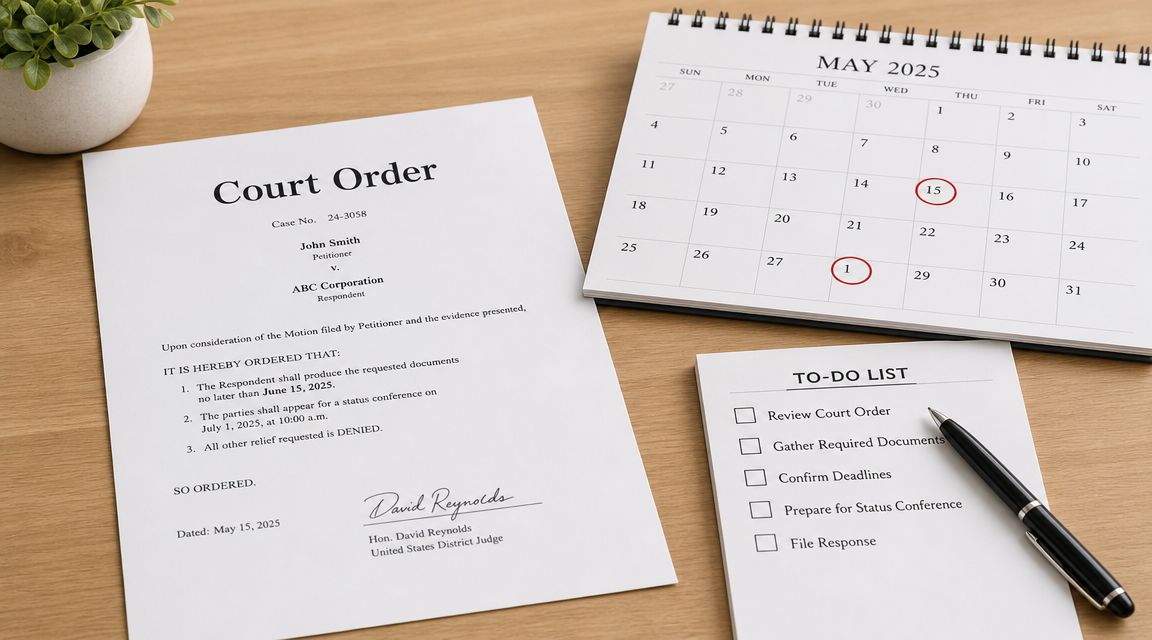 Court Order
Case No. 24-3058
John Smith
Petitioner
v.
ABC Corporation
Respondent
Upon consideration of the Motion filed by Petitioner and the evidence presented,
IT IS HEREBY ORDERED THAT:
1. The Respondent shall produce the requested documents
no later than June 15, 2025.
2. The parties shall appear for a status conference on
July 1, 2025, at 10:00 a.m.
3. All other relief requested is DENIED.
SO ORDERED.
Dated: May 15, 2025
David Reynolds
Hon. David Reynolds
United States District Judge
MAY 2025
SUN MON TUE WED THU FRI SAT
27 28 29 30 1 2 3
4 5 6 7 8 9 10
11 12 13 14 15 16 17
18 19 20 21 22 23 24
25 26 27 1 29 30 31
TO-DO LIST
Review Court Order
Gather Required Documents
Confirm Deadlines
Prepare for Status Conference
File Response